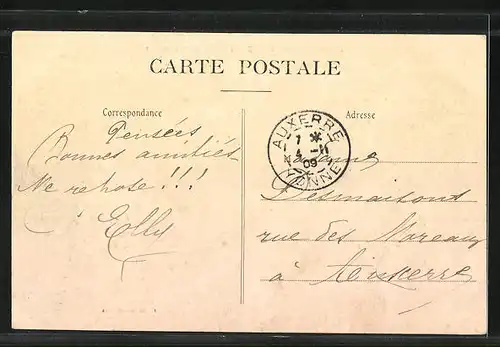 CARTE POSTALE
Correspondance
Adresse
Pensées
Bonnes amitiés
Me repose!!!
Elly
AUXERRE
1 *
4 -11
09
YONNE
Madame
Desmaisons
rue des Moreaux
à Auxerre